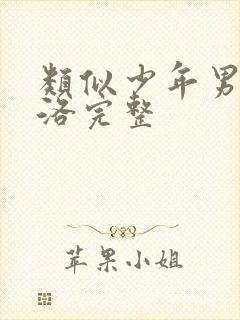 類似少年男
洛完整
苹果小姐